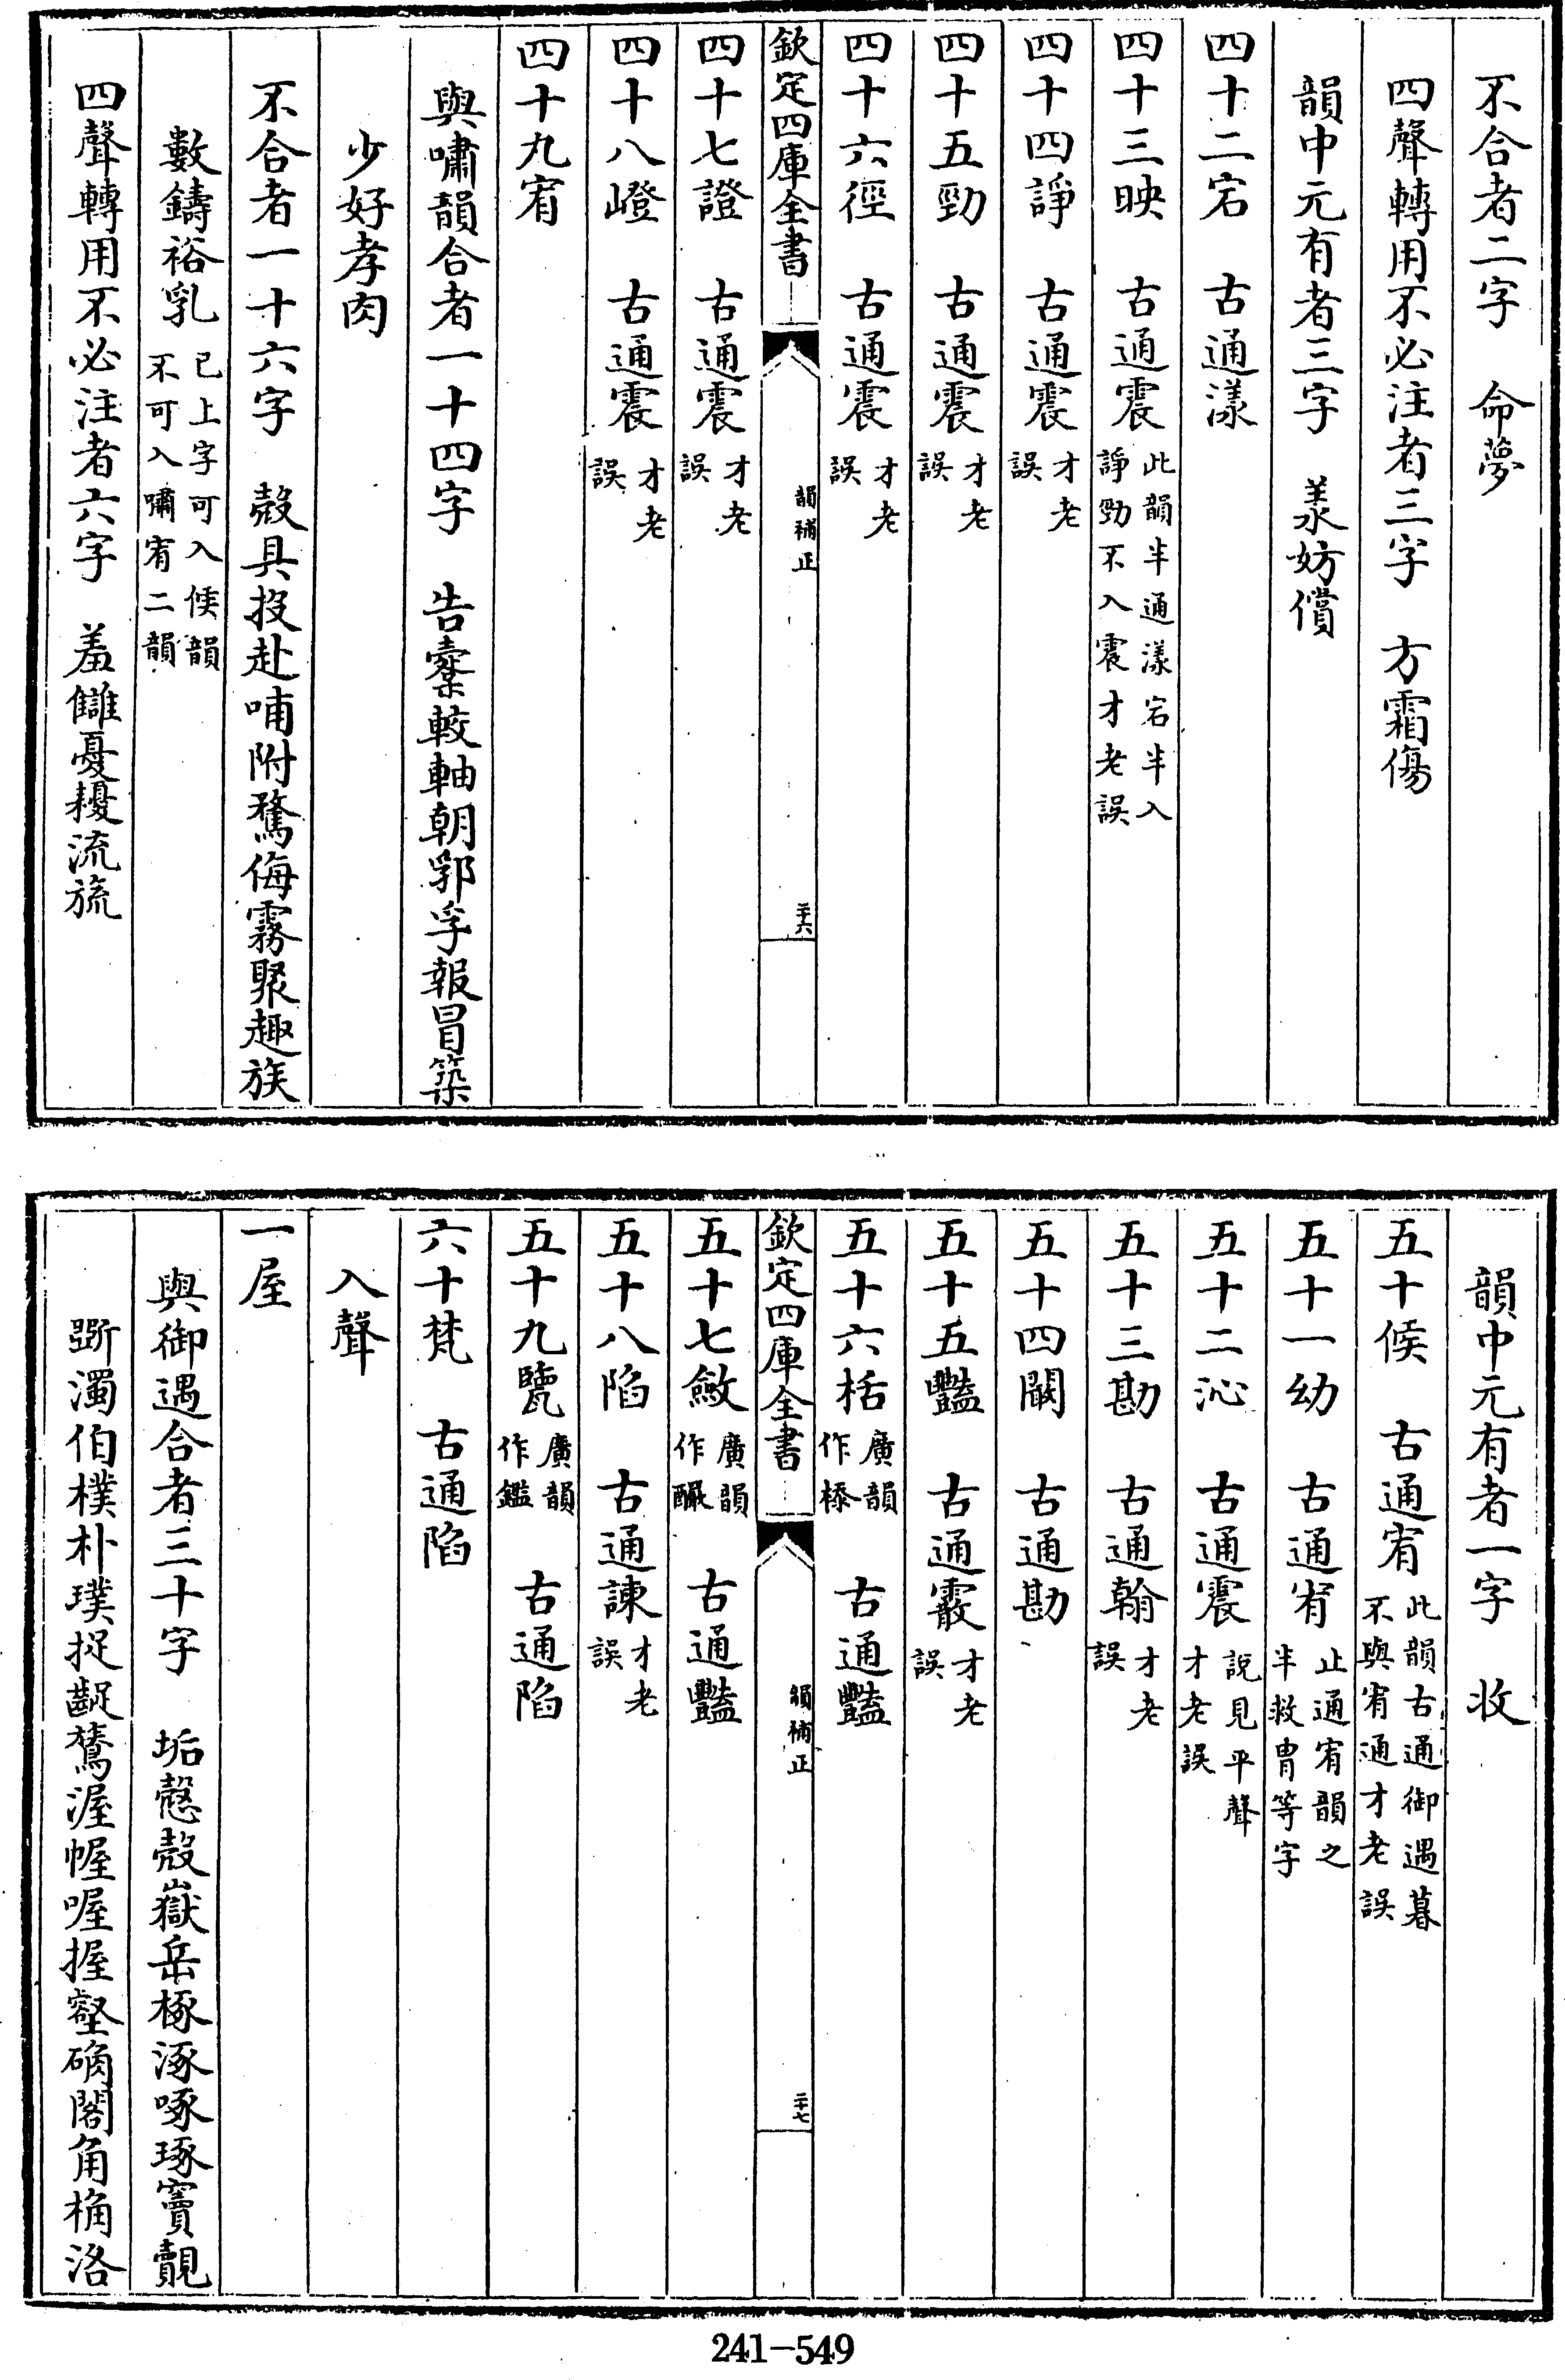 不合者二字　命夢
四聲轉用不必注者三字　方霜傷
韻中元有者三字　羕妨償
四十二宕　古通漾
四十三映　古通震此韻半通漾宕半入諍勁不入震才老誤
四十四諍　古通震才老誤
四十五勁　古通震才老誤
四十六徑　古通震才老誤
欽定四庫全書　韻補正　二十六
四十七證　古通震才老誤
四十八嶝　古通震才老誤
四十九宥
與嘯韻合者一十四字　告櫜較軸朝郛孚報冒築
少好孝肉
不合者一十六字　殼具投赴哺附騖侮霧聚趣族
數鑄裕乳已上字可入候韻不可入嘯宥二韻
四聲轉用不必注者六字　羞讎憂耰流旒
韻中元有者一字　收
五十候　古通宥此韻古通御遇暮不與宥通才老誤
五十一幼　古通宥止通宥韻之半救胄等字
五十二沁　古通震說見平聲才老誤
五十三勘　古通翰才老誤
五十四闞　古通勘
五十五豔　古通霰才老誤
五十六栝廣韻作㮇　古通豔
欽定四庫全書　韻補正　二十七
五十七斂廣韻作釅　古通豔
五十八陷　古通諫才老誤
五十九覽廣韻作鑑　古通陷
六十梵　古通陷
入聲
一屋
與御遇合者三十字　垢慤殼嶽岳椓涿啄琢竇覿
斲濁伯樸朴璞捉齪鷟渥幄喔握壑确閣角桷洛
241-549